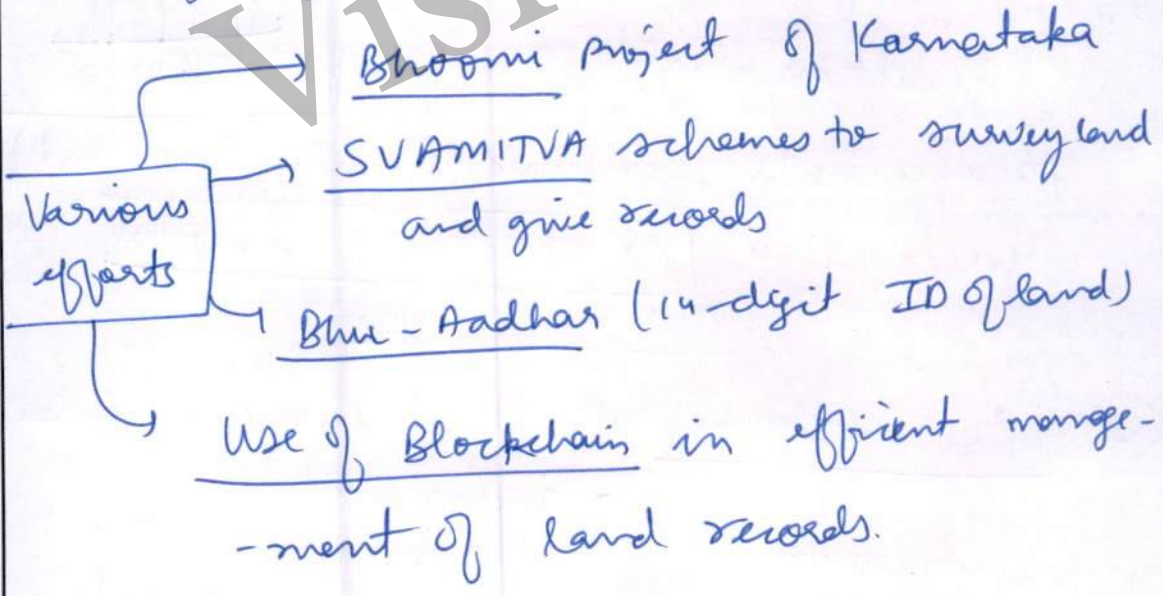 Bhoomi project of Karnataka
SVAMITVA schemes to survey land
and give records
Various
efforts
Bhu-Aadhar (14-digit ID of land)
Use of Blockchain in efficient manage-
-ment of land records.